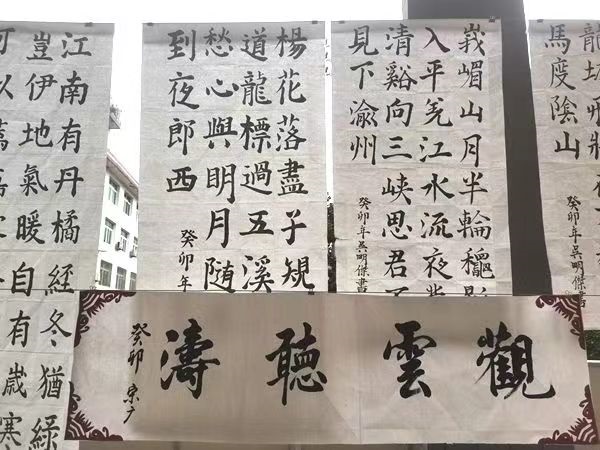 龍城飛將
馬度陰山
癸卯年吳明傑書
峩嵋山月半輪穐影
入平羌江水流夜發
清谿向三峽思君不
見下渝州
癸卯年吳明傑書
楊花落盡子規
道龍標過五溪
愁心與明月随
到夜郎西
癸卯年
江南有丹橘經冬猶綠
豈伊地氣暖自有歲寒
可以薦嘉
觀雲聽濤
癸卯